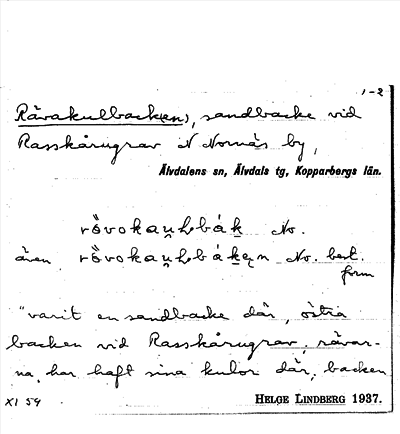 1-2
Rävakulback(en), sandbacke vid
Rasskårugrav N Nornäs by,
Älvdalens sn, Älvdals tg, Kopparbergs län.
No.
även No. best.
form
"varit en sandbacke där, östra
backen vid Rasskårugrav, rävar-
na har haft sina kulor där, backen
XI 59 HELGE LINDBERG 1937.